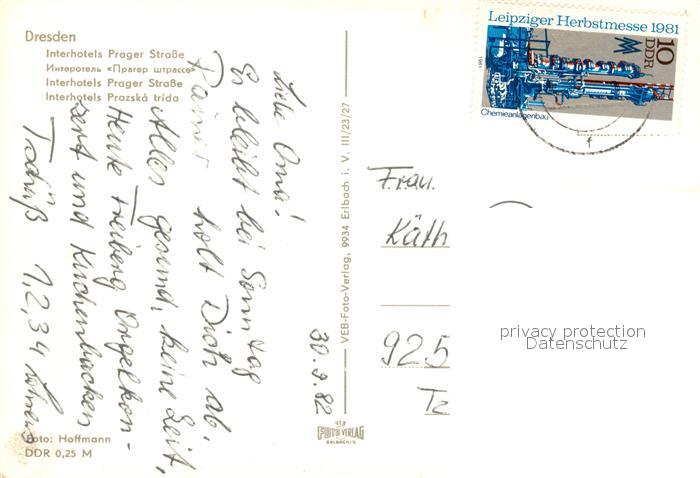 Dresden
Interhotels Prager Straße
Интеротель «Прагер штрассе»
Interhotels Prager Straße
Interhotels Prazská trida
Liebe Oma!
Es bleibt bei Sonntag
Rainer holt Dich ab.
Alles gesund, keine Zeit,
Heute Freiberg Orgelkon-
zert und Kuchenbacken
1, 2, 3, 4
30.9.82
Foto: Hoffmann
DDR 0,25 M
VEB-Foto-Verlag, 9934 Erlbach i. V. III/23/27
FOTO VERLAG
ERLBACH/V.
Leipziger Herbstmesse 1981
10
DDR
1981
Chemieanlagenbau
f
Frau
Käth
925
privacy protection
Datenschutz